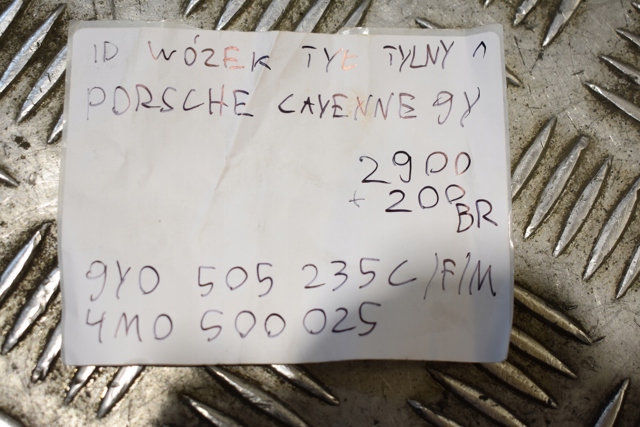 ID WÓZEK TYŁ TYLNY ^
PORSCHE CAYENNE 9Y
2900
+ 200 BR
9Y0 505 235C/F/M
4M0 500 025